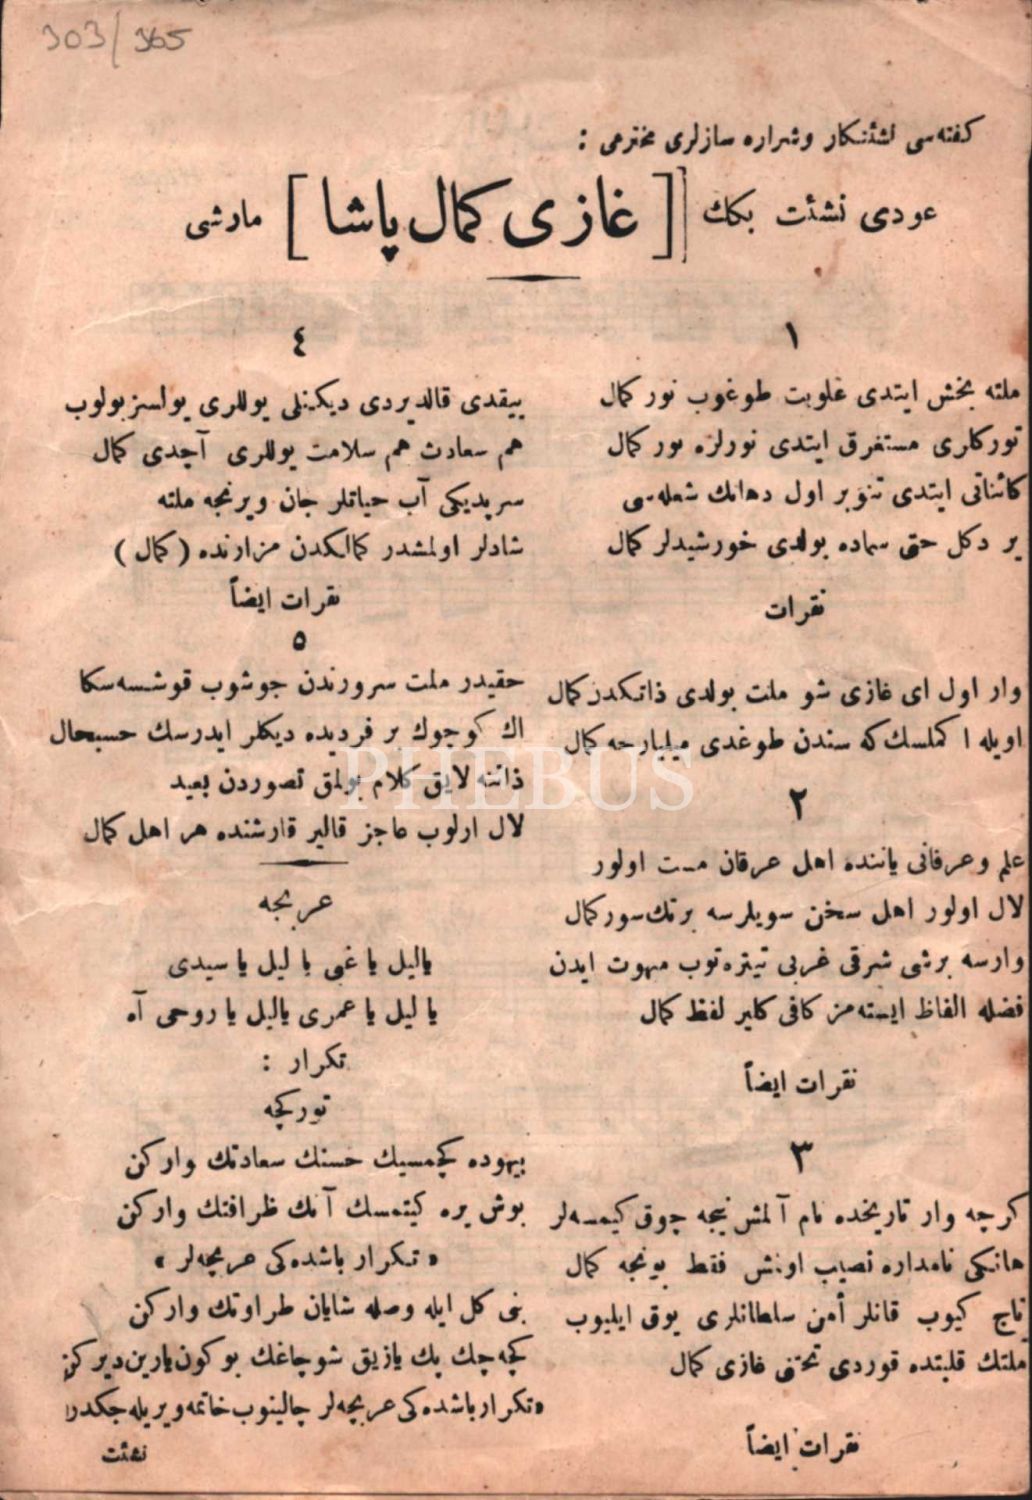 303/365
كفته‌سی نشئه‌كار وشراره سازلری محترمی :
عودی نشئت بكك [ غازی كمال پاشا ] مارشی
١
ملته بخش ایتدی غلوبت طوغوب نور كمال
توركلری مستغرق ایتدی نورلره نور كمال
كائناتی ایتدی تنویر اول دهانك شعله‌سی
یر دكل حتی سماده بولدی خورشیدلر كمال
نقرات
وار اول ای غازی شو ملت بولدی ذاتكدن كمال
اویله اكملسك كه سندن طوغدی میلیارجه كمال
٢
علم وعرفانی یاننده اهل عرقان مست اولور
لال اولور اهل سخن سویلرسه برتك سور كمال
وارسه برشی شرقی غربی تیتره‌توب مبهوت ایدن
فضله الفاظ ایسته‌مز كافی كلیر لفظ كمال
نقرات ایضاً
٣
كرچه وار تاریخده نام آلمش نیجه چوق كیمسه‌لر
هانكی نامداره نصیب اونش فقط بونجه كمال
تاج كیوب قانلر أمن سلطانلری یوق ایلیوب
ملتك قلبنده قوردی تختی غازی كمال
نقرات ایضاً
٤
ییقدی قالدیردی دیكنلی یوللری یولسز بولوب
هم سعادت هم سلامت یوللری آچدی كمال
سرپدیكی آب حیاتلر جان ویرنجه ملته
شادلر اولمشدر كمالكدن مزارنده (كمال)
نقرات ایضاً
٥
حقیدر ملت سرورندن جوشوب قوشسه سكا
اك كوجوك بر فردیده دیكلر ایدرسك حسبحال
ذاتنه لایق كلام بولمق تصوردن بعید
لال ارلوب عاجز قالیر قارشنده هر اهل كمال
عربجه
یالیل یا غی یا لیل یا سیدی
یا لیل یا عمری یالیل یا روحی آه
تكرار :
توركچه
بیهوده كچمسیك حسنك سعادتك واركن
بوش یره كیتمسك آنك ظرافتك واركن
« تكرار باشده‌كی عربجه‌لر »
بنی كل ایله وصله شایان طراوتك واركن
كچه‌جك پك یازیق شوچاغك بوكون یارین دیركن
«تكرار باشده‌كی عربجه‌لر چالینوب خاتمه ویریله‌جكدر»
نشئت
PHEBUS